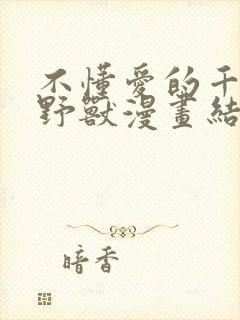 不懂愛的干
野獸漫畫結
暗香